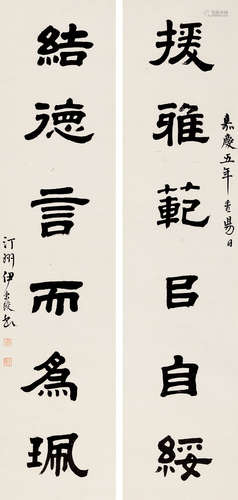 援雅範㠯自綏
嘉慶五年重陽日
結德言而為珮
汀州伊秉綬